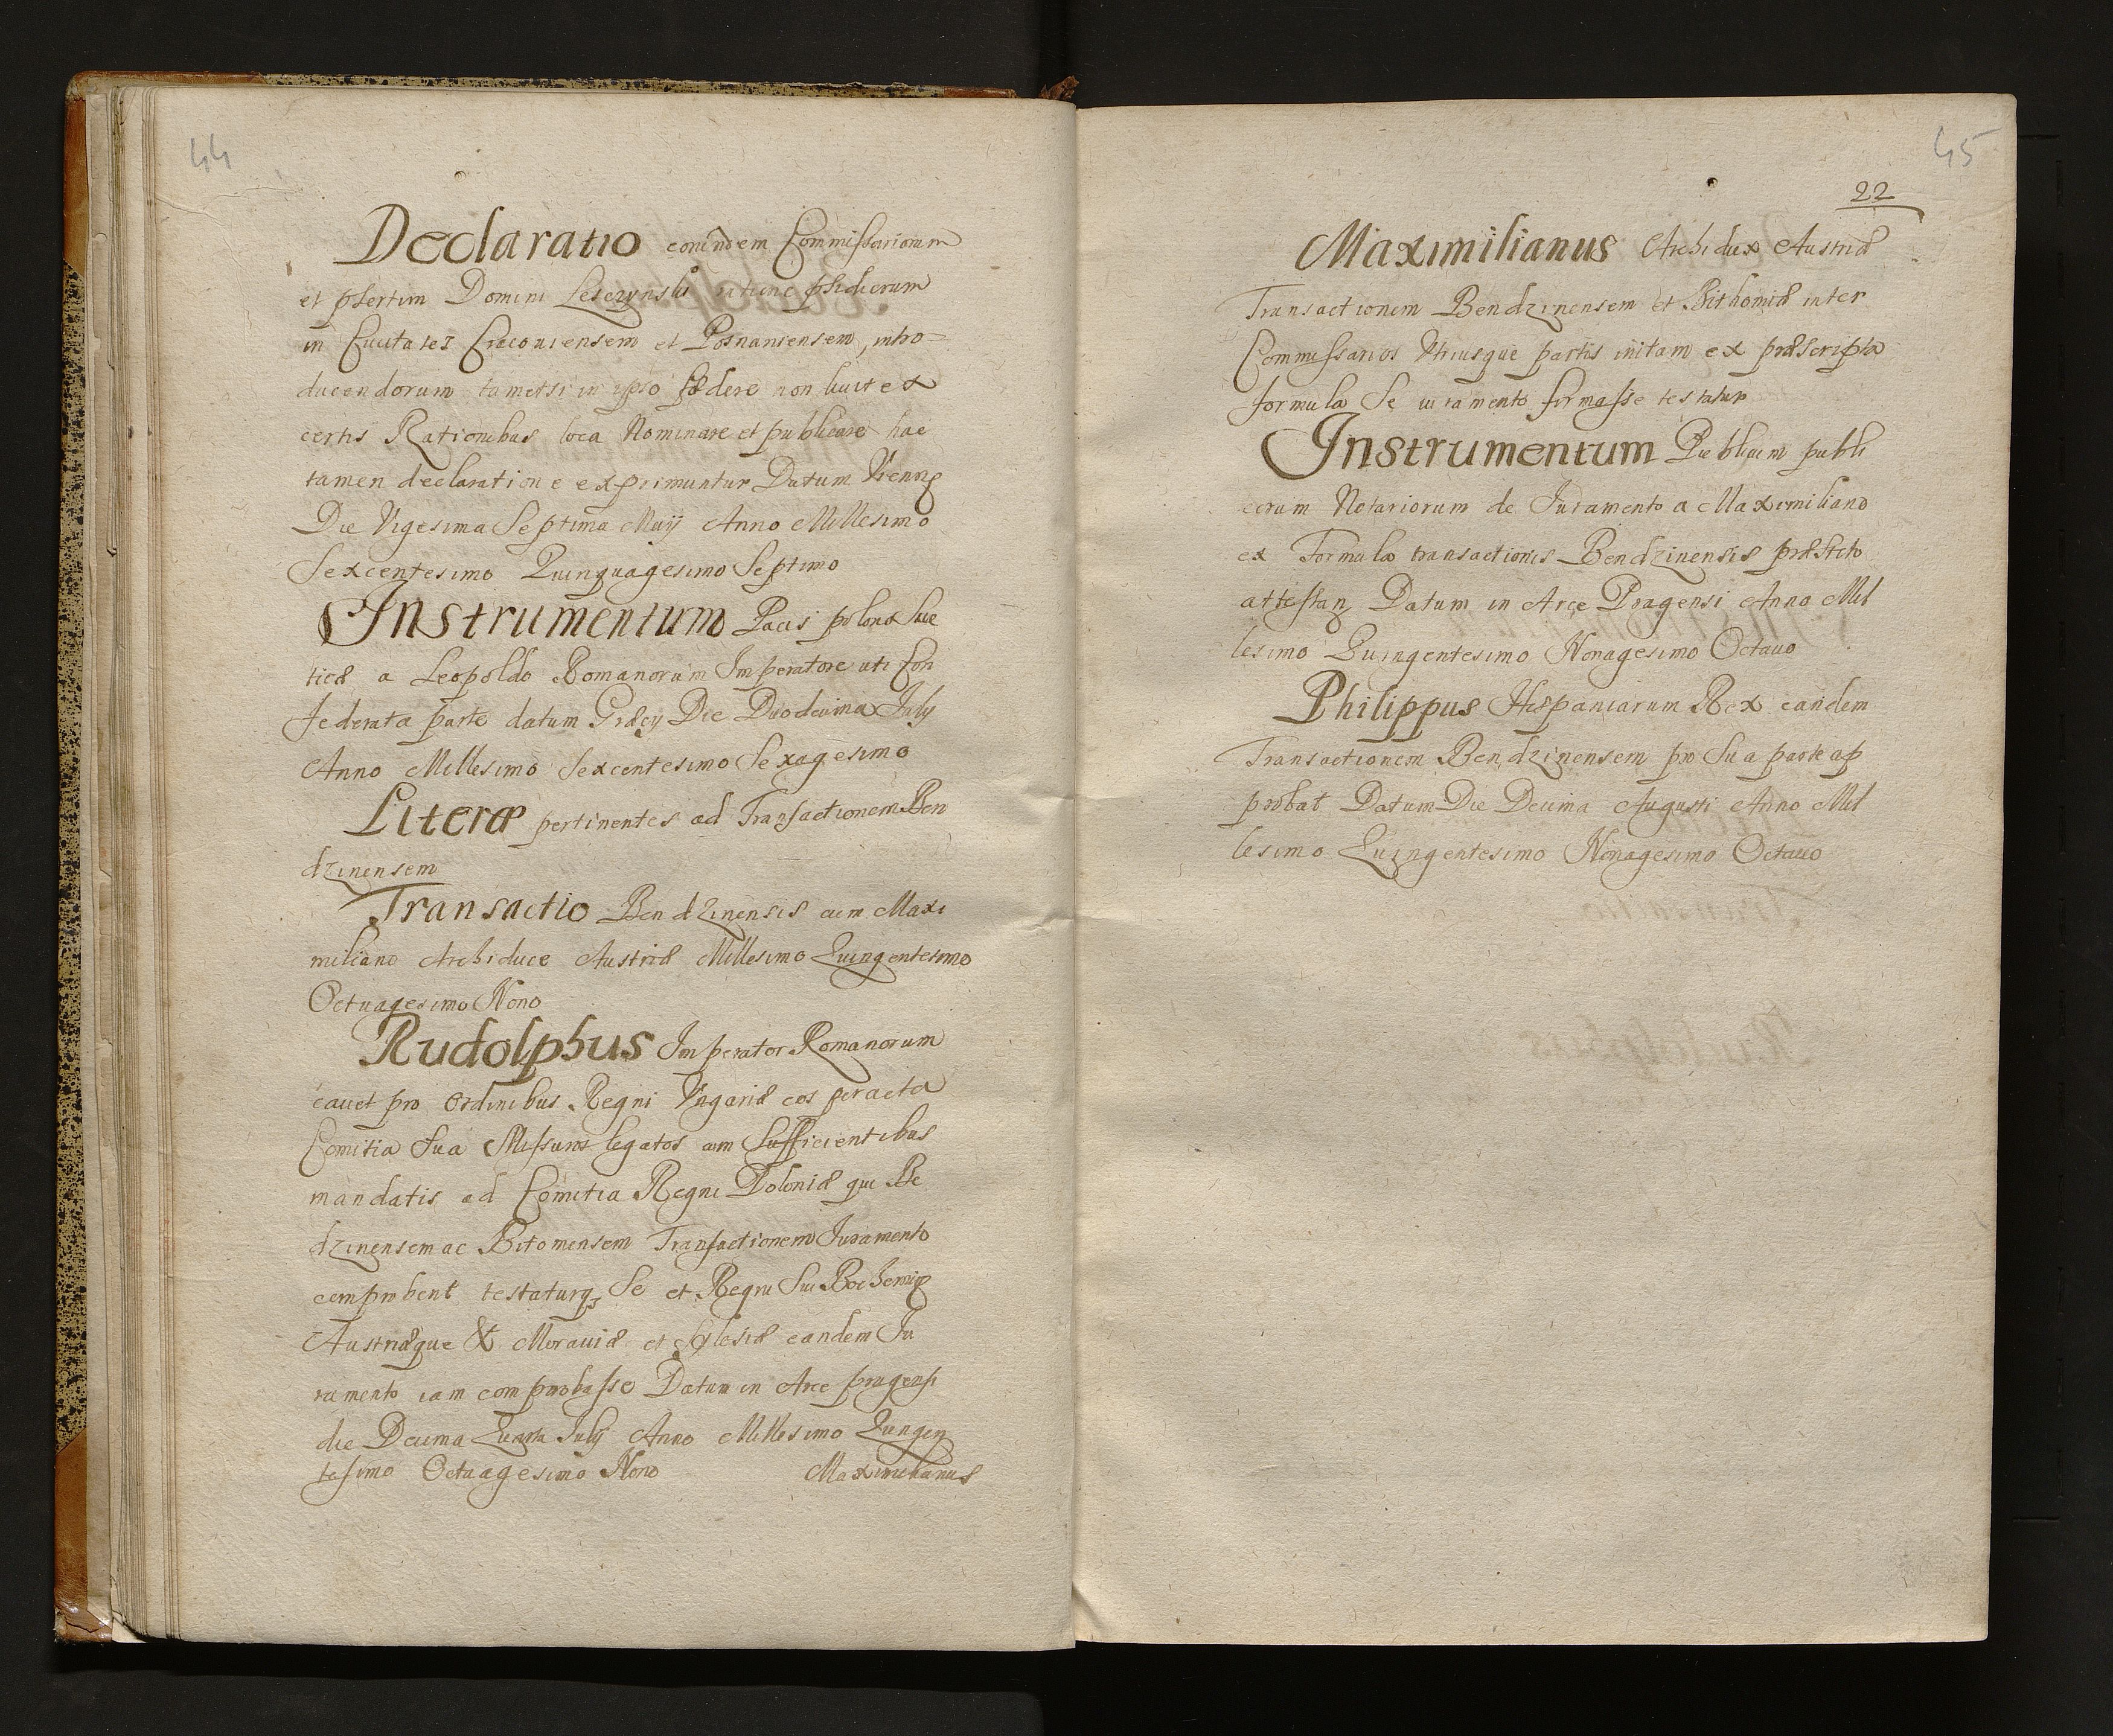 44
Declaratio eorundem Commissariorum
et psertim Domini Lesczynski ratione psidiorum
in Ciuitates Cracouiensem et Posnaniensem, intro-
ducendorum tametsi in ipso fœdere non licuit ex
certis Rationibus loca Nominare et publicare hac
tamen declaratione exprimuntur Datum Viennę
Die Vigesima Septima Maij Anno Millesimo
Sexcentesimo Quinquagesimo Septimo
Instrumentum Pacis polonæ Sue
ticæ a Leopoldo Romanorum Imperatore uti Con
federata parte datum Græcij Die Duodecima July
Anno Millesimo Sexcentesimo Sexagesimo
Literæ pertinentes ad Transactionem Ben
dzinensem
Transactio Bendzinensis cum Maxi
miliano Archiduce Austriæ Millesimo Quingentesimo
Octuagesimo Nono
Rudolphus Imperator Romanorum
cauet pro Ordinibus Regni Vngariæ eos peracta
Comitia sua Missuros legatos cum Sufficientibus
mandatis ad Comitia Regni Poloniæ qui Be
dzinensem ac Bitomensem Transactionem Juramento
comprobent testaturq3 Se et Regni Sui Bochemię
Austriæque & Morauiæ et Sylesiæ eandem Ju
ramento iam comprobasse Datum in Arce pragensi
die Decima Quarta July Anno Millesimo Quingen
tesimo Octuagesimo Nono
Maximilianus
45
22
Maximilianus Archidux Austriæ
Transactionem Bendzinensem et Bithomiæ inter
Commissarios Vtriusque partis initam ex præscripta
formula Se iuramento firmasse testatur
Instrumentum Publicum publi
corum Notariorum de Juramento a Maximiliano
ex Formula transactionis Bendzinensis præstito
attestans Datum in Arce Pragensi Anno Mil
lesimo Quingentesimo Nonagesimo Octauo
Philippus Hispaniarum Rex eandem
Transactionem Bendzinensem pro Sua parte ap
probat Datum Die Decima Augusti Anno Mil
lesimo Quingentesimo Nonagesimo Octauo